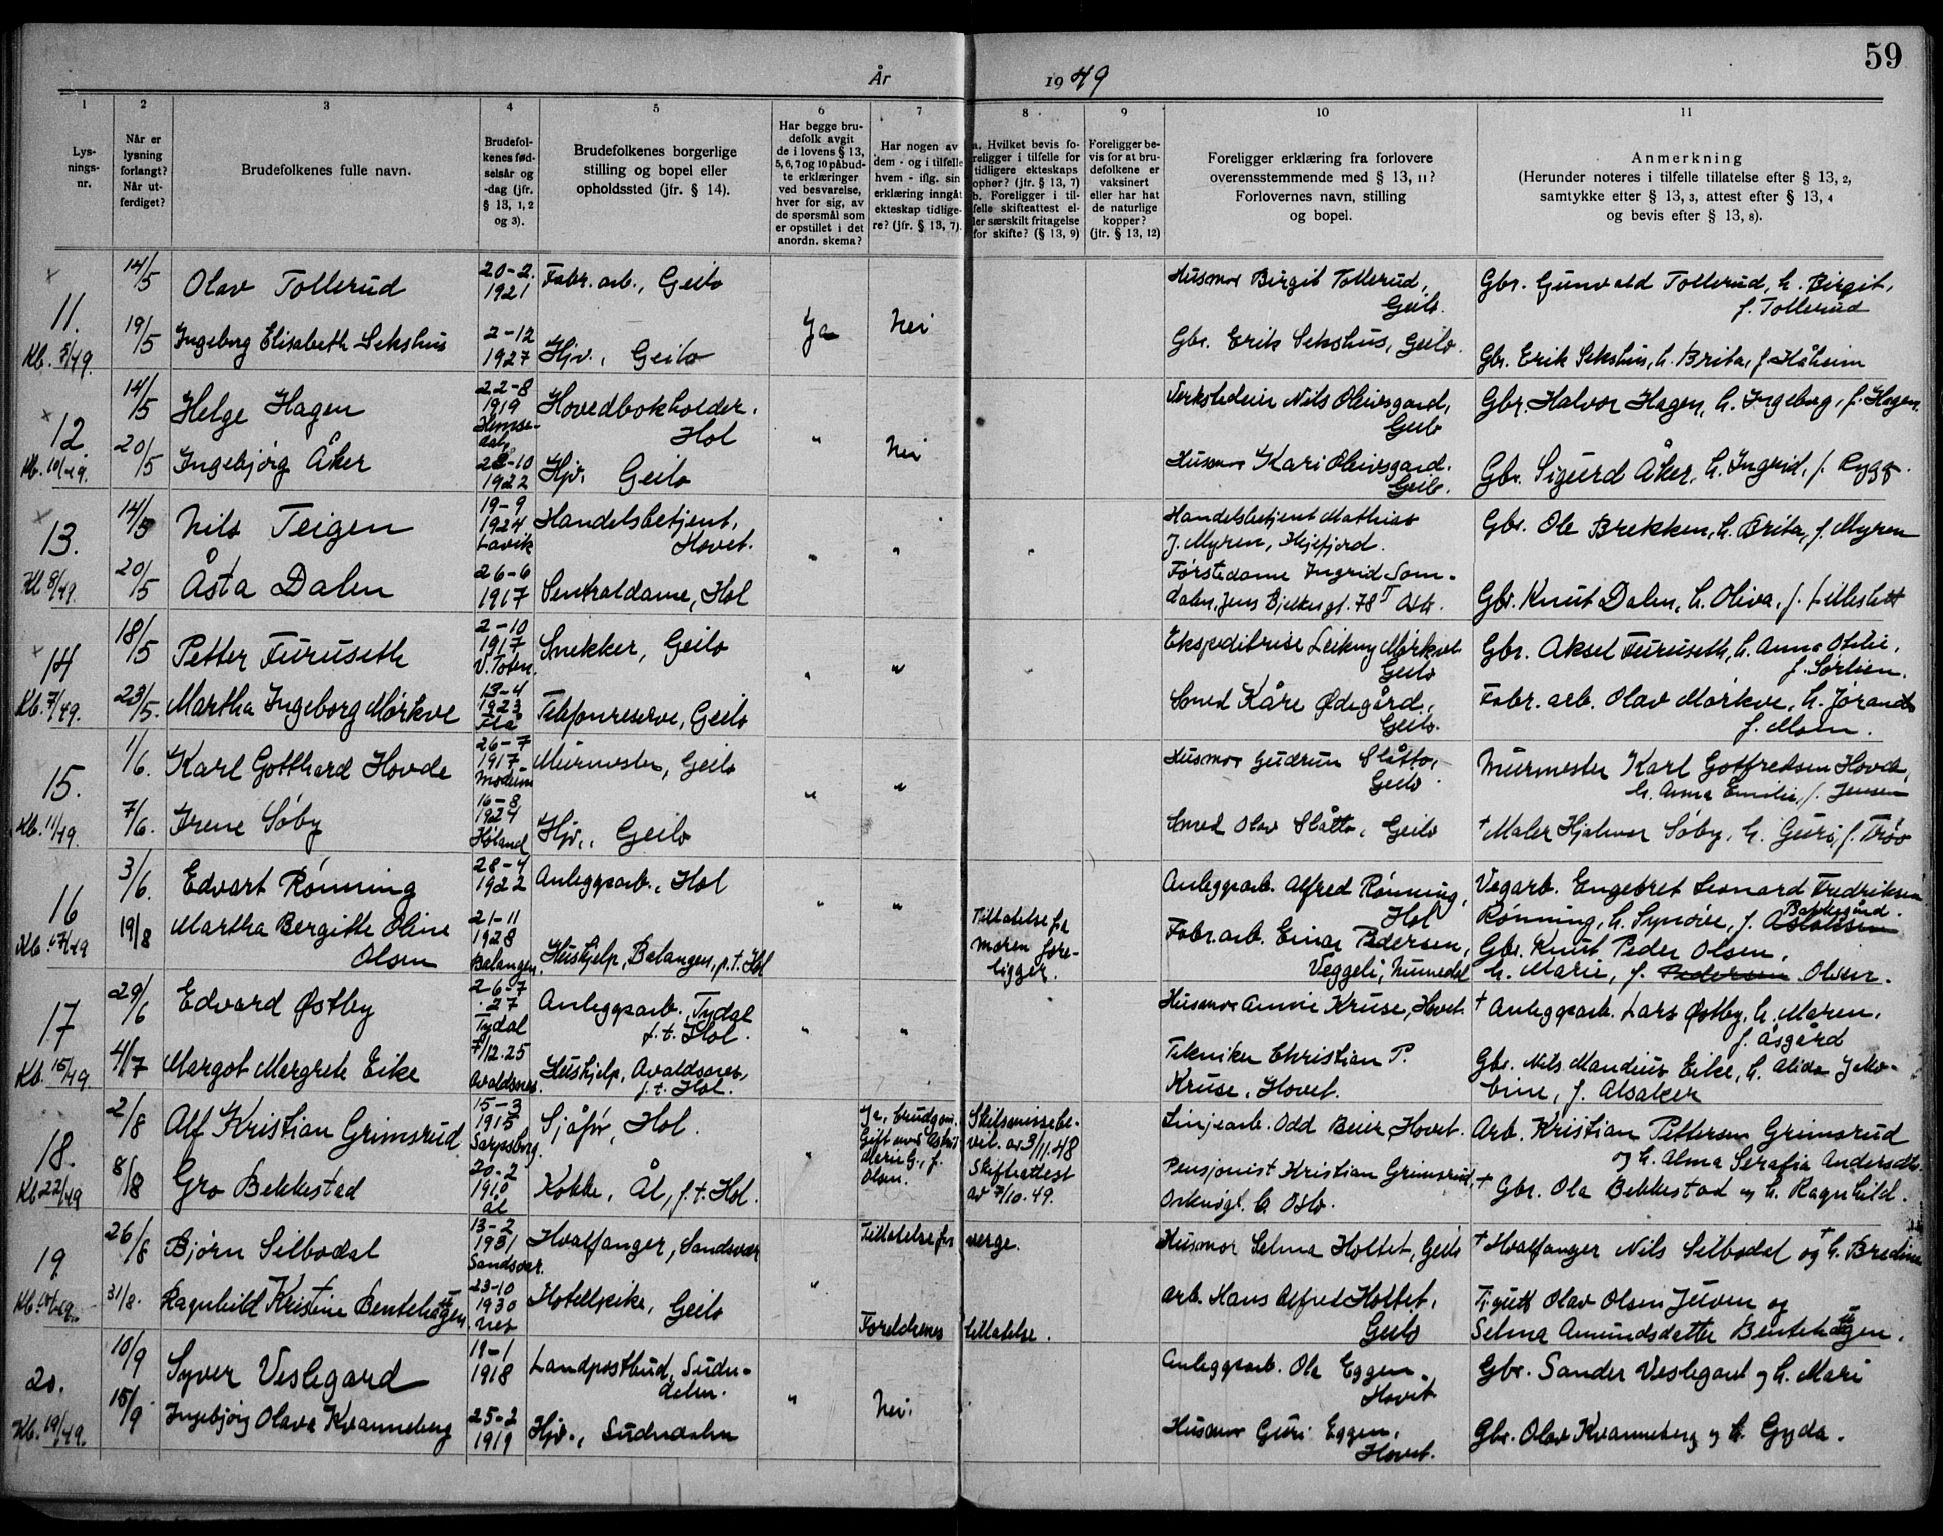 År 1949
59
1
Lys-
nings-
nr.
2
Når er
lysning
forlangt?
Når ut-
ferdiget?
3
Brudefolkenes fulle navn.
4
Brudefol-
kenes fød-
selsår og
-dag (jfr.
§ 13, 1, 2
og 3).
5
Brudefolkenes borgerlige
stilling og bopel eller
opholdssted (jfr. § 14).
6
Har begge bru-
defolk avgit
de i lovens § 13,
5, 6, 7 og 10 påbud-
te erklæringer
ved besvarelse,
hver for sig, av
de spørsmål som
er opstillet i det
anordn. skema?
7
Har nogen av
dem - og i tilfelle
hvem - iflg. sin
erklæring inngåt
ekteskap tidlige-
re? (jfr. § 13, 7).
8
a. Hvilket bevis fo-
religger i tilfelle for
tidligere ekteskaps
ophør? (jfr. § 13, 7)
b. Foreligger i til-
felle skifteattest el-
ler særskilt fritagelse
for skifte? (§ 13, 9)
9
Foreligger be-
vis for at bru-
defolkene er
vaksinert
eller har hat
de naturlige
kopper?
(jfr. § 13, 12)
10
Foreligger erklæring fra forlovere
overensstemmende med § 13, 11?
Forlovernes navn, stilling
og bopel.
11
Anmerkning
(Herunder noteres i tilfelle tillatelse efter § 13, 2,
samtykke etter § 13, 3, attest efter § 13, 4
og bevis efter § 13, 8).
x
11.
Kb. 5/49.
14/5 Olav Tollerud 20-2. 1921 Fabr. arb., Geilo
Husmor Birgit Tollerud, Geilo.
Gbr. Gunvald Tollerud, h. Birgit,
f. Tollerud
19/5 Ingeborg Elisabeth Sekshus 2-12 1927 Hjv., Geilo Ja Nei
Gbr. Erik Sekshus, Geilo.
Gbr. Erik Sekshus, h. Brita, f. Håheim
x
12.
Kb. 10/49.
14/5 Helge Hagen 22-8 1919 Hemse-
dal Hovedbokholder,
Hol
Verkstedeier Nils Olivsgard,
Geilo
Gbr. Halvor Hagen, h. Ingeborg, f. Hagen.
20/5 Ingebjørg Åker 28-10 1922 Hjv. Geilo " Nei
Husmor Kari Olivsgard.
Geilo.
Gbr. Sigurd Åker, h. Ingrid, f. Rygg.
x
13.
Kb 8/49.
14/5 Nils Teigen 19-9 1924 Lavik Handelsbetjent,
Hovet. " " "
Handelsbetjent Mathias
J. Myren, Højefjord.
Gbr. Ole Brekken, h. Brita, f. Myren
20/5 Åsta Dalen 26-6 1917 Sentraldame, Hol
Førstedame Ingrid Som-
dalen, Jens Bjelkesgt. 78 I Oslo.
Gbr. Knut Dalen, h. Oliva, f. Lilleslett
x
14
Kb. 7/49.
18/5 Petter Furuseth 2-10 1917 V. Toten. Snekker, Geilo " " "
Ekspeditrise Leikny Mørkve
Geilo
Gbr. Aksel Furuseth, h. Anna Otilie,
f. Sørlien.
23/5. Martha Ingeborg Mørkve 13-4 1923 Flå Telefonreserve, Geilo
Smed Kåre Ødegård,
Geilo.
Fabr. arb. Olav Mørkve, h. Jørand
f. Moen.
15.
Kb. 11/49.
1/6. Karl Gotthard Hovde 26-7 1917 Modum Murmester, Geilo " "
Husmor Gudrun Slåtto,
Geilo.
Murmester Karl Gottfredsen Hovde,
h. Anna Emilie, f. Jensen
7/6. Irene Søby 16-8 1924 Høland Hjv., Geilo
Smed Olav Slåtto, Geilo
† Maler Hjalmar Søby, h. Guri, f. Trøo
16
Kb. 17/49
3/6. Edvart Rønning 28-4 1922 Anleggsarb., Hol " "
Anleggsarb. Alfred Rønning,
Hol
Vegarb. Engebret Leonard Fredriksen
Rønning, h. Synøve, f.
19/8 Martha Bergitte Oline
Olsen 21-11 1928 Balangen. Hushjelp, Balangen, p.t. Hol
Tillatelse fra
moren fore-
ligger.
Fabr. arb. Einar Pedersen,
Veggeli, Numedal
Gbr. Knut Peder Olsen,
h. Marie, f. Pedersen Olsen.
17
Kb. 15/49.
29/6 Edvard Østby 26-7 27 Tydal Anleggsarb., Tydal
f.t. Hol. " "
Husmor Annie Kruse, Hovet.
† Anleggsarb. Lars Østby, h. Maren,
f. Åsgård
4/7 Margot Margrete Eike 7/12-25 Avaldsnes. Hushjelp, Avaldsnes,
f.t. Hol.
Tekniker Christian P.
Kruse, Hovet.
Gbr. Nils Mandius Eike, h. Alida Jako-
bine, f. Alsaker
18.
Kb 22/49
2/8 Alf Kristian Grimsrud 15-3 1915 Sarpsborg. Sjåfør, Hol. "
Ja, brudgom.
Gift med Astrid
Marie G., f.
Olsen.
Skilsmissebe-
vil. av 3/11.48
Skifteattest
av 7/10.49.
Linjearb. Odd Beier, Hovet.
Arb. Kristian Pettersen Grimsrud
og h. Alma Serafia Andersdtr.
8/8 Gro Bekkestad 20-2 1910 Ål Kokke, Ål, f.t. Hol.
Pensjonist Kristian Grimsrud,
Oslo.
† Gbr. Ola Bekkestad og h. Ragnhild.
19
26/8 Bjørn Selbodal 13-2 1931 Sandsvær. Hvalfanger, Sandsvær "
Tillatelse fra verge.
Husmor Selma Holtet, Geilo
† Hvalfanger Nils Selbodal og † h. Bredine
31/8. Ragnhild Kristine Bentehaugen 23-10 1930 Nes Hotellpike, Geilo
Foreldrenes tillatelse.
Arb. Hans Alfred Holtet,
Geilo
Olav Olsen Juven og
Selma Amundsdatter Bentehaugen.
20.
Kb. 19/49.
10/9 Syver Veslegard 19-1 1918 Landpostbud, Sudn-
dalen. " Nei.
Anleggsarb. Ole Eggen.
Hovet
Gbr. Sander Veslegard og h. Mari
15/9 Ingebjørg Olava Kvanneberg 25-2 1919 Hjv., Sudndalen
Husmor Guri Eggen,
Hovet.
Gbr. Olav Kvanneberg og h. Gyda.